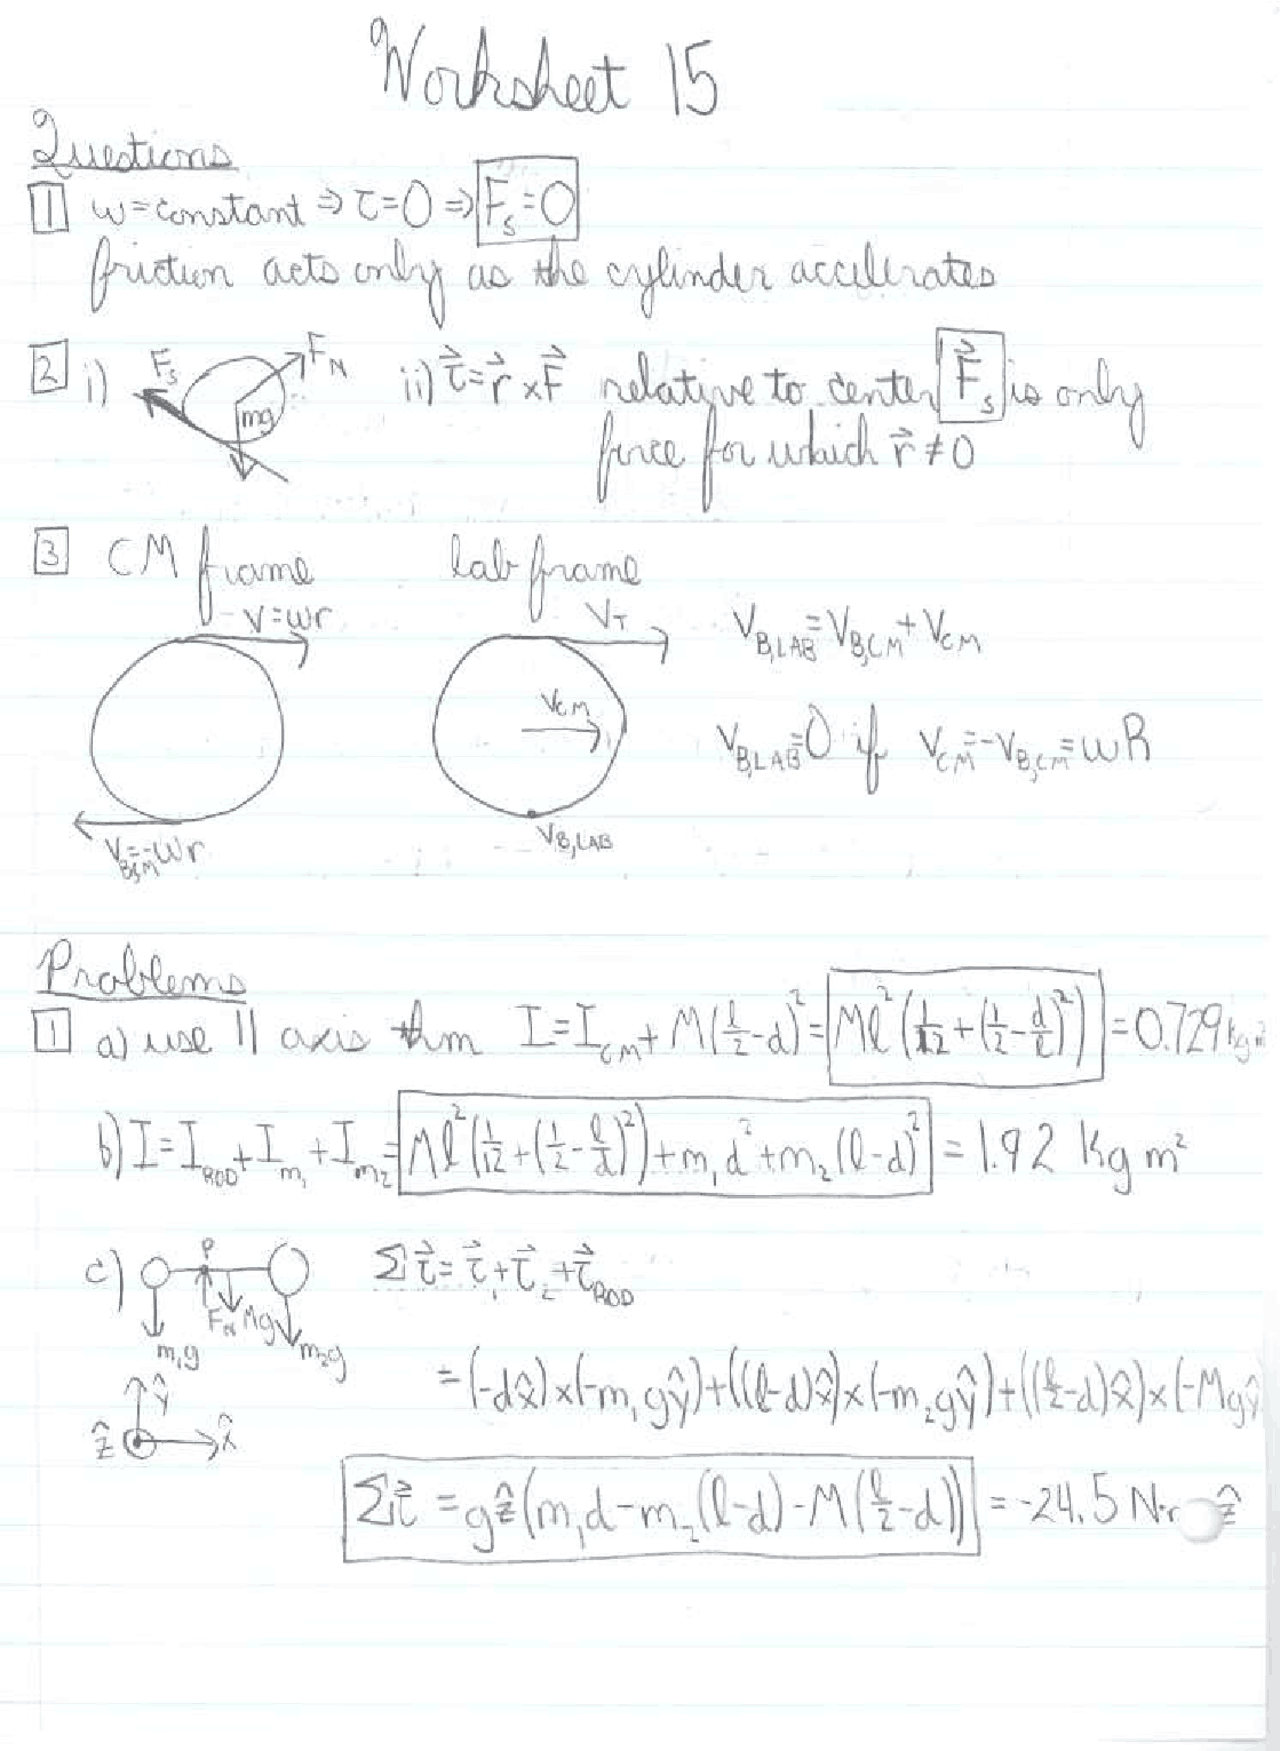 Worksheet 15
Questions
1 ω=constant ⇒ τ=0 ⇒ F_s=0
friction acts only as the cylinder accelerates
2 i) F_s F_N mg ii) τ⃗=r⃗×F⃗ relative to center F⃗_s is only
force for which r⃗≠0
3 CM frame lab frame
V=ωr V_T V_B,LAB=V_B,CM+V_CM
V_CM V_B,LAB=0 if V_CM=-V_B,CM=ωR
V_B,CM=-ωr V_B,LAB
Problems
1 a) use || axis thm I=I_CM+M(l/2-d)²=Ml²(1/12+(1/2-d/l)²)=0.729 kg m²
b) I=I_ROD+I_m₁+I_m₂=Ml²(1/12+(1/2-l/d)²)+m₁d²+m₂(l-d)²=1.92 kg m²
c) P Στ⃗=τ⃗₁+τ⃗₂+τ⃗_ROD
F_N Mg
m₁g m₂g
=(-dx̂)×(-m₁gŷ)+((l-d)x̂)×(-m₂gŷ)+((l/2-d)x̂)×(-Mgŷ
ŷ
ẑ x̂
Στ⃗=gẑ(m₁d-m₂(l-d)-M(l/2-d))=-24.5 N· ẑ